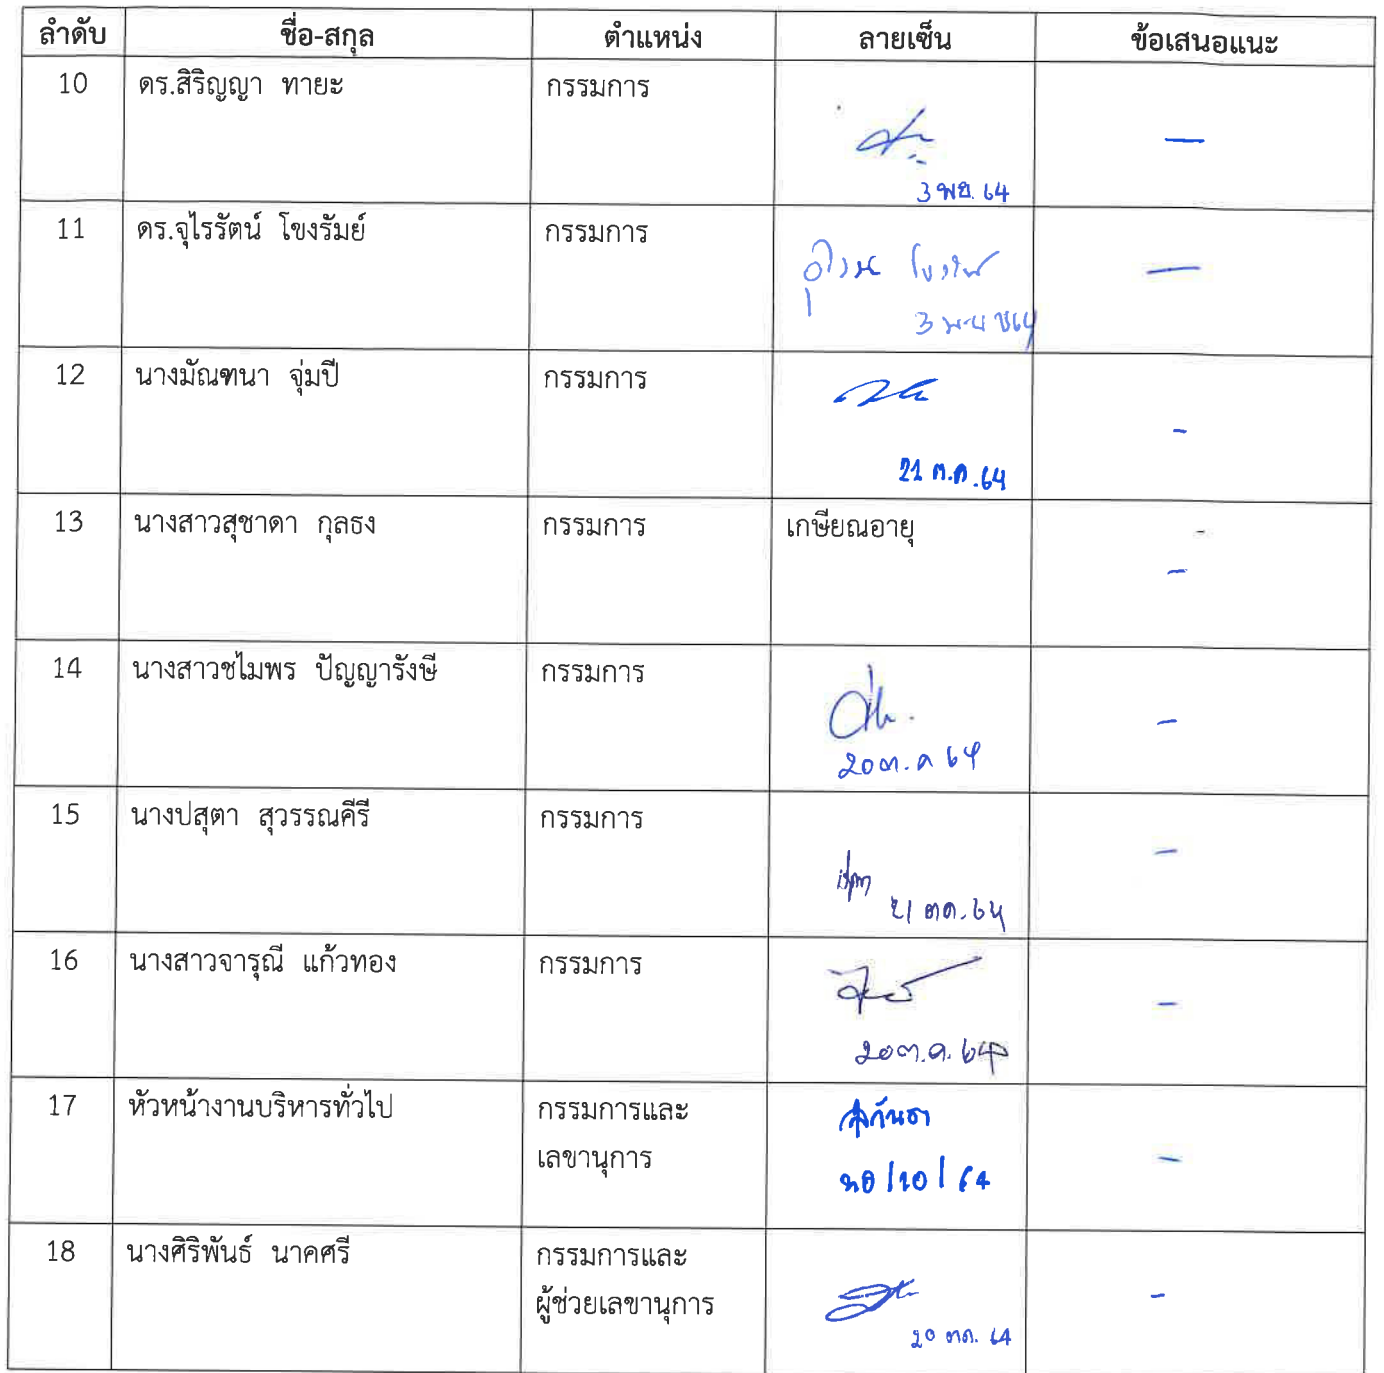 ลำดับ ชื่อ-สกุล ตำแหน่ง ลายเซ็น ข้อเสนอแนะ
10 ดร.สิริญญา ทายะ กรรมการ
—
3 พย. 64
11 ดร.จุไรรัตน์ โขงรัมย์ กรรมการ
—
12 นางมัณฑนา จุ่มปี กรรมการ
-
21 ต.ค. 64
13 นางสาวสุชาดา กุลธง กรรมการ เกษียณอายุ -
-
14 นางสาวชไมพร ปัญญารังษี กรรมการ
-
20 ต.ค 64
15 นางปสุตา สุวรรณคีรี กรรมการ
-
21 ตค. 64
16 นางสาวจารุณี แก้วทอง กรรมการ
-
20 ต.ค. 64
17 หัวหน้างานบริหารทั่วไป กรรมการและ
เลขานุการ -
20/10/64
18 นางศิริพันธ์ นาคศรี กรรมการและ
ผู้ช่วยเลขานุการ -
20 ตค. 64